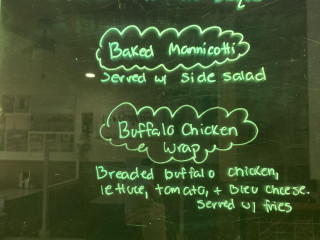 Baked Mannicotti
Served w/ side salad
Buffalo Chicken
Wrap
Breaded buffalo chicken,
lettuce, tomato, + bleu cheese.
Served w/ fries